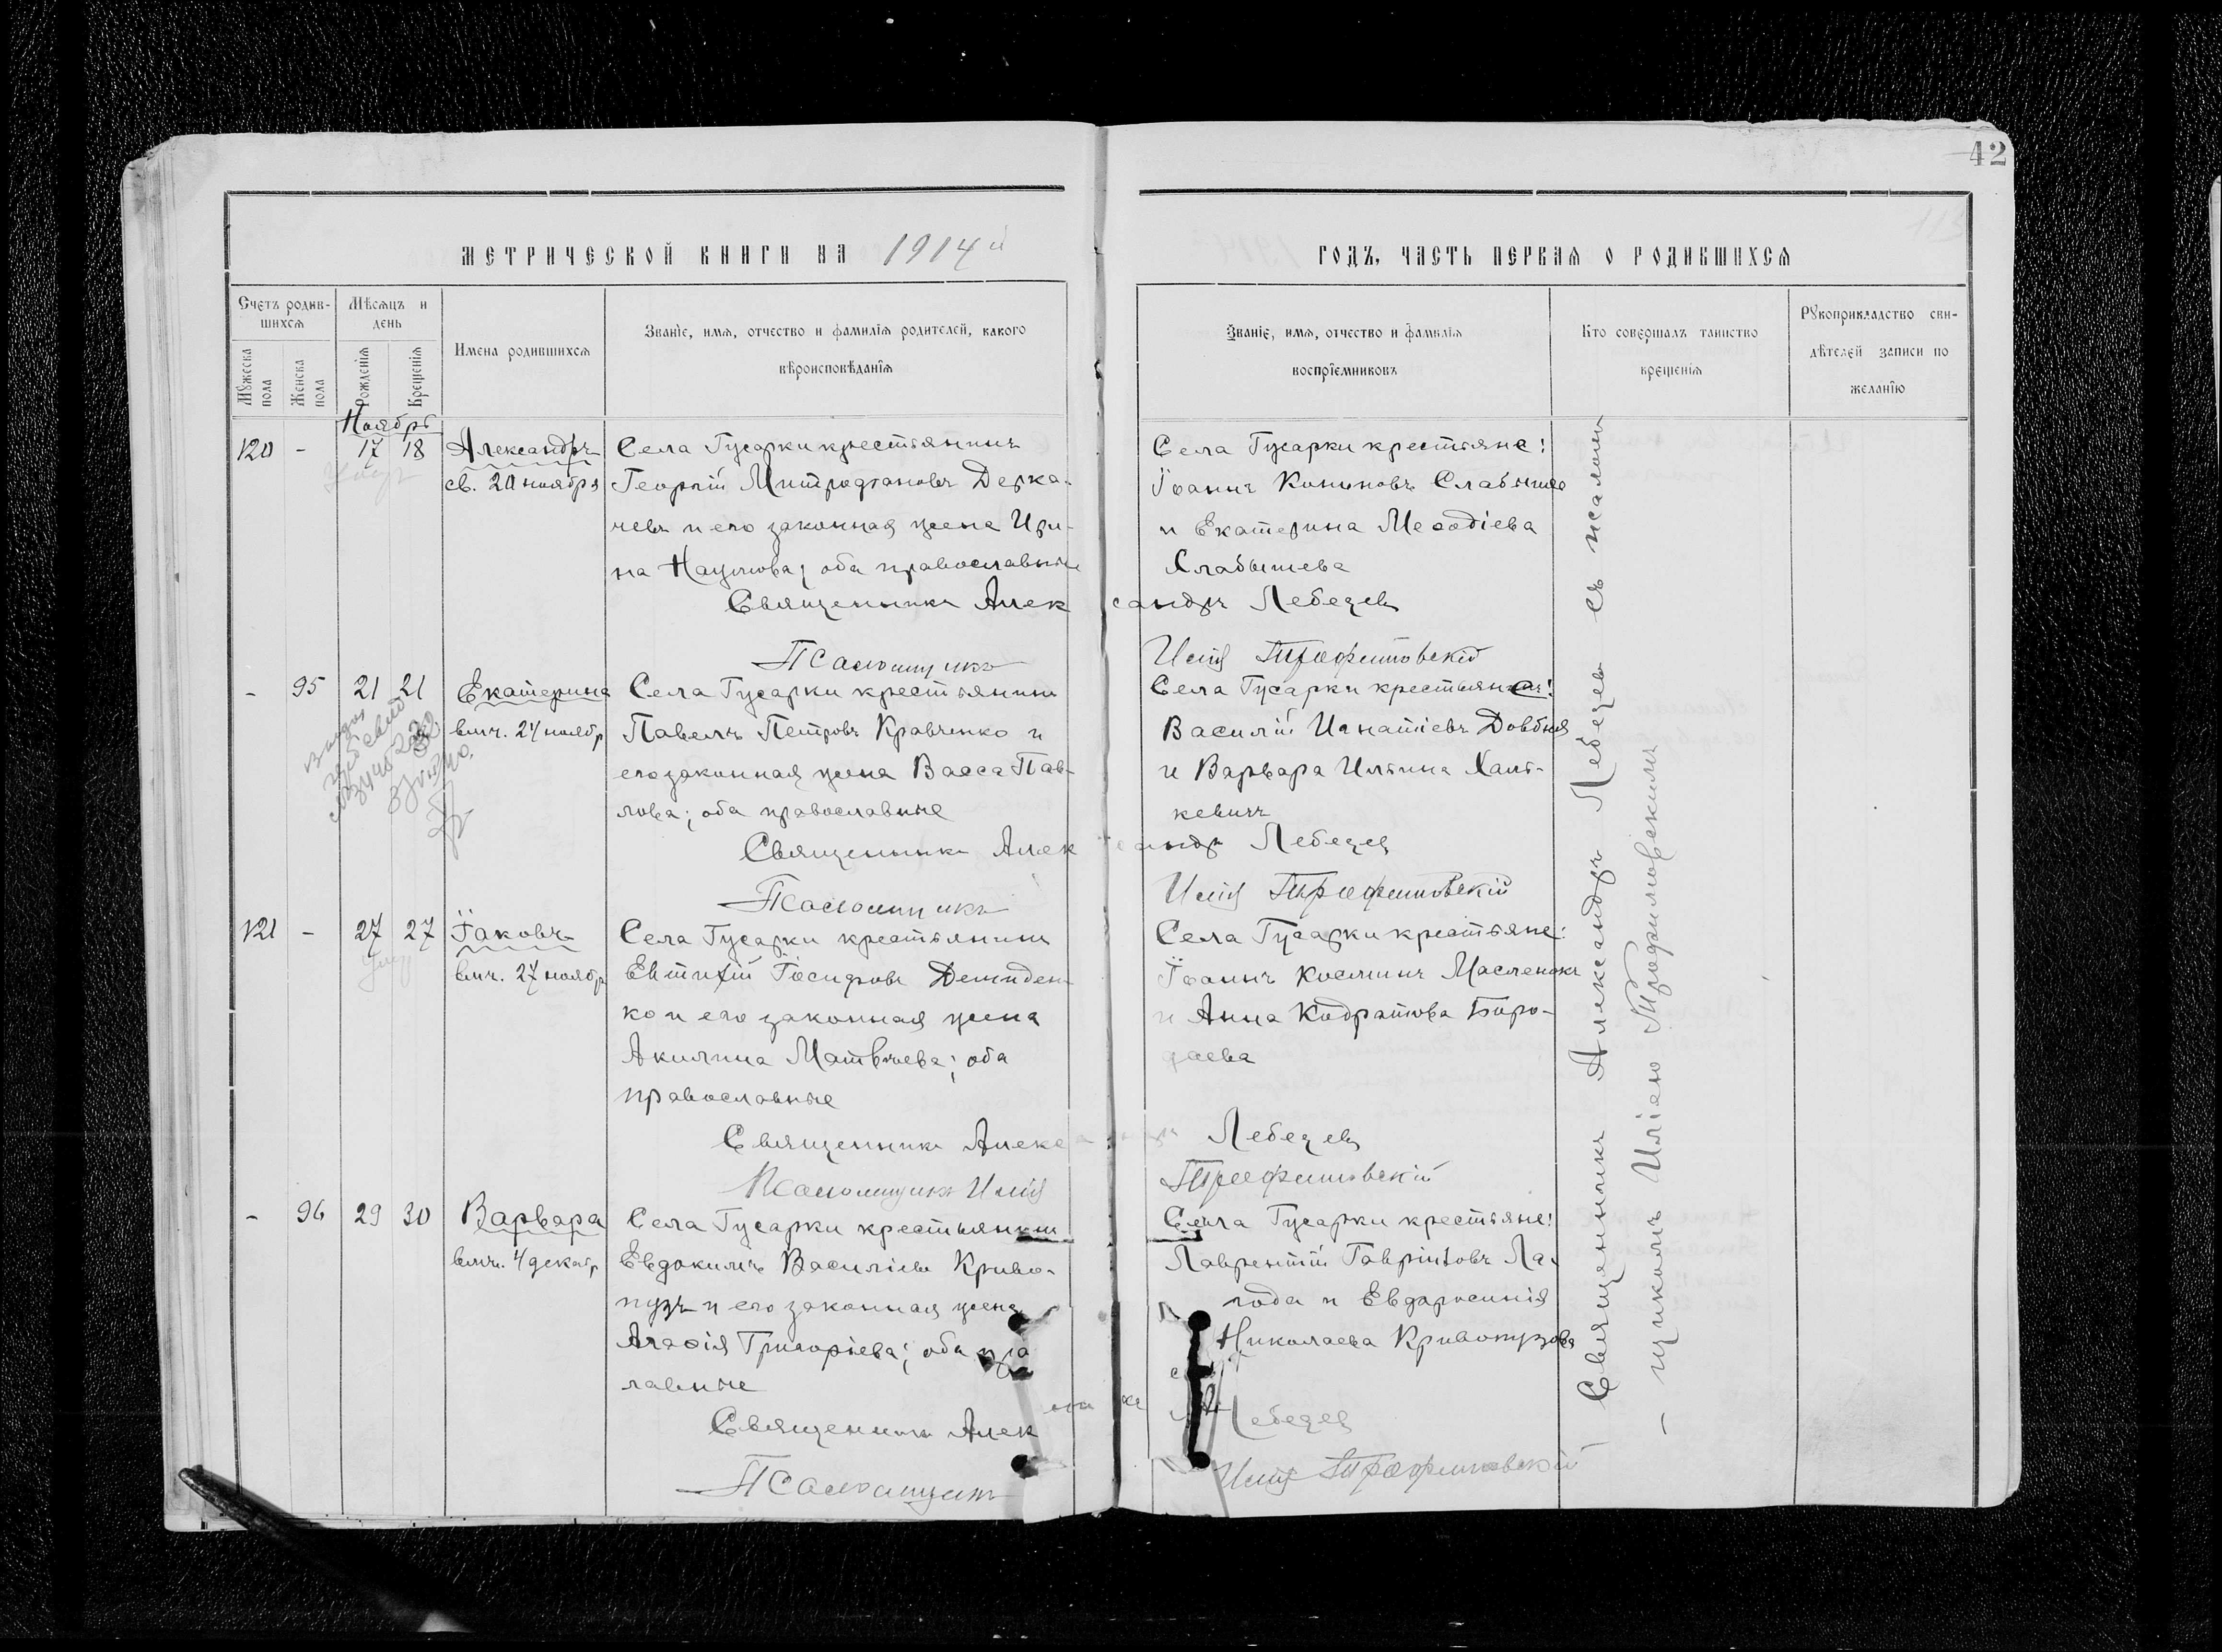 42
МЕТРИЧЕСКОЙ КНИГИ НА 1914й
ГОДЪ, ЧАСТЬ ПЕРВАЯ О РОДИВШИХСЯ
Счетъ родив-
шихся
Мѣсяцъ и
день
Мужеска
пола
Женска
пола
Рожденія
Крещенія
Имена родившихся
Званіе, имя, отчество и фамилія родителей, какого
вѣроисповѣданія
Званіе, имя, отчество и фамилія
воспріемниковъ
Кто совершалъ таинство
крещенія
Рукоприкладство сви-
дѣтелей записи по
желанію
Ноябрь
120 - 17 18 Александръ
св. 20 ноября
Села Гусарки крестьянинъ
Георгій Митрофановъ Дерка-
чевъ и его законная жена Ири-
на Наумова; оба православные
Села Гусарки крестьяне:
Іоаннъ Кононовъ
и Екатерина Меѳодіева
Слабышева
Священникъ Александръ Лебедев
Псаломщикъ Илія Трофимовскій
- 95 21 21 Екатерина
вмч. 24 ноябр
Села Гусарки крестьянинъ
Павелъ Петровъ Кравченко и
его законная жена Васса Пав-
лова; оба православные
Села Гусарки крестьяне:
Василій Игнатіевъ Довбня
и Варвара Ильина Халь-
кевичъ
Священникъ Александръ Лебедев
Псаломщикъ Илія Трофимовскій
121 - 27 27 Іаковъ
вмч. 27 ноябр
Села Гусарки крестьянинъ
Евтихій Іосифовъ Демиден-
ко и его законная жена
Акилина Матвѣева; оба
православные
Села Гусарки крестьяне:
Іоаннъ Космин Масленокъ
и Анна Кодратова Боро-
даева
Священникъ Александръ Лебедев
Псаломщикъ Илія Трофимовскій
- 96 29 30 Варвара
вмч. 4 декабр
Села Гусарки крестьянин
Евдокимъ Василіевъ Криво-
пузъ и его законная жена
Агаѳія Григоріева; оба пра
лавные
Села Гусарки крестьяне:
Лаврентій Гавріиловъ Ла-
года и
Николаева Кривопузова
Священник Алек Лебедев
Псаломщикъ Илія Трофимовскій
Священникъ Александръ Лебедев съ псалом-
- щикомъ Иліею Трофимовскимъ